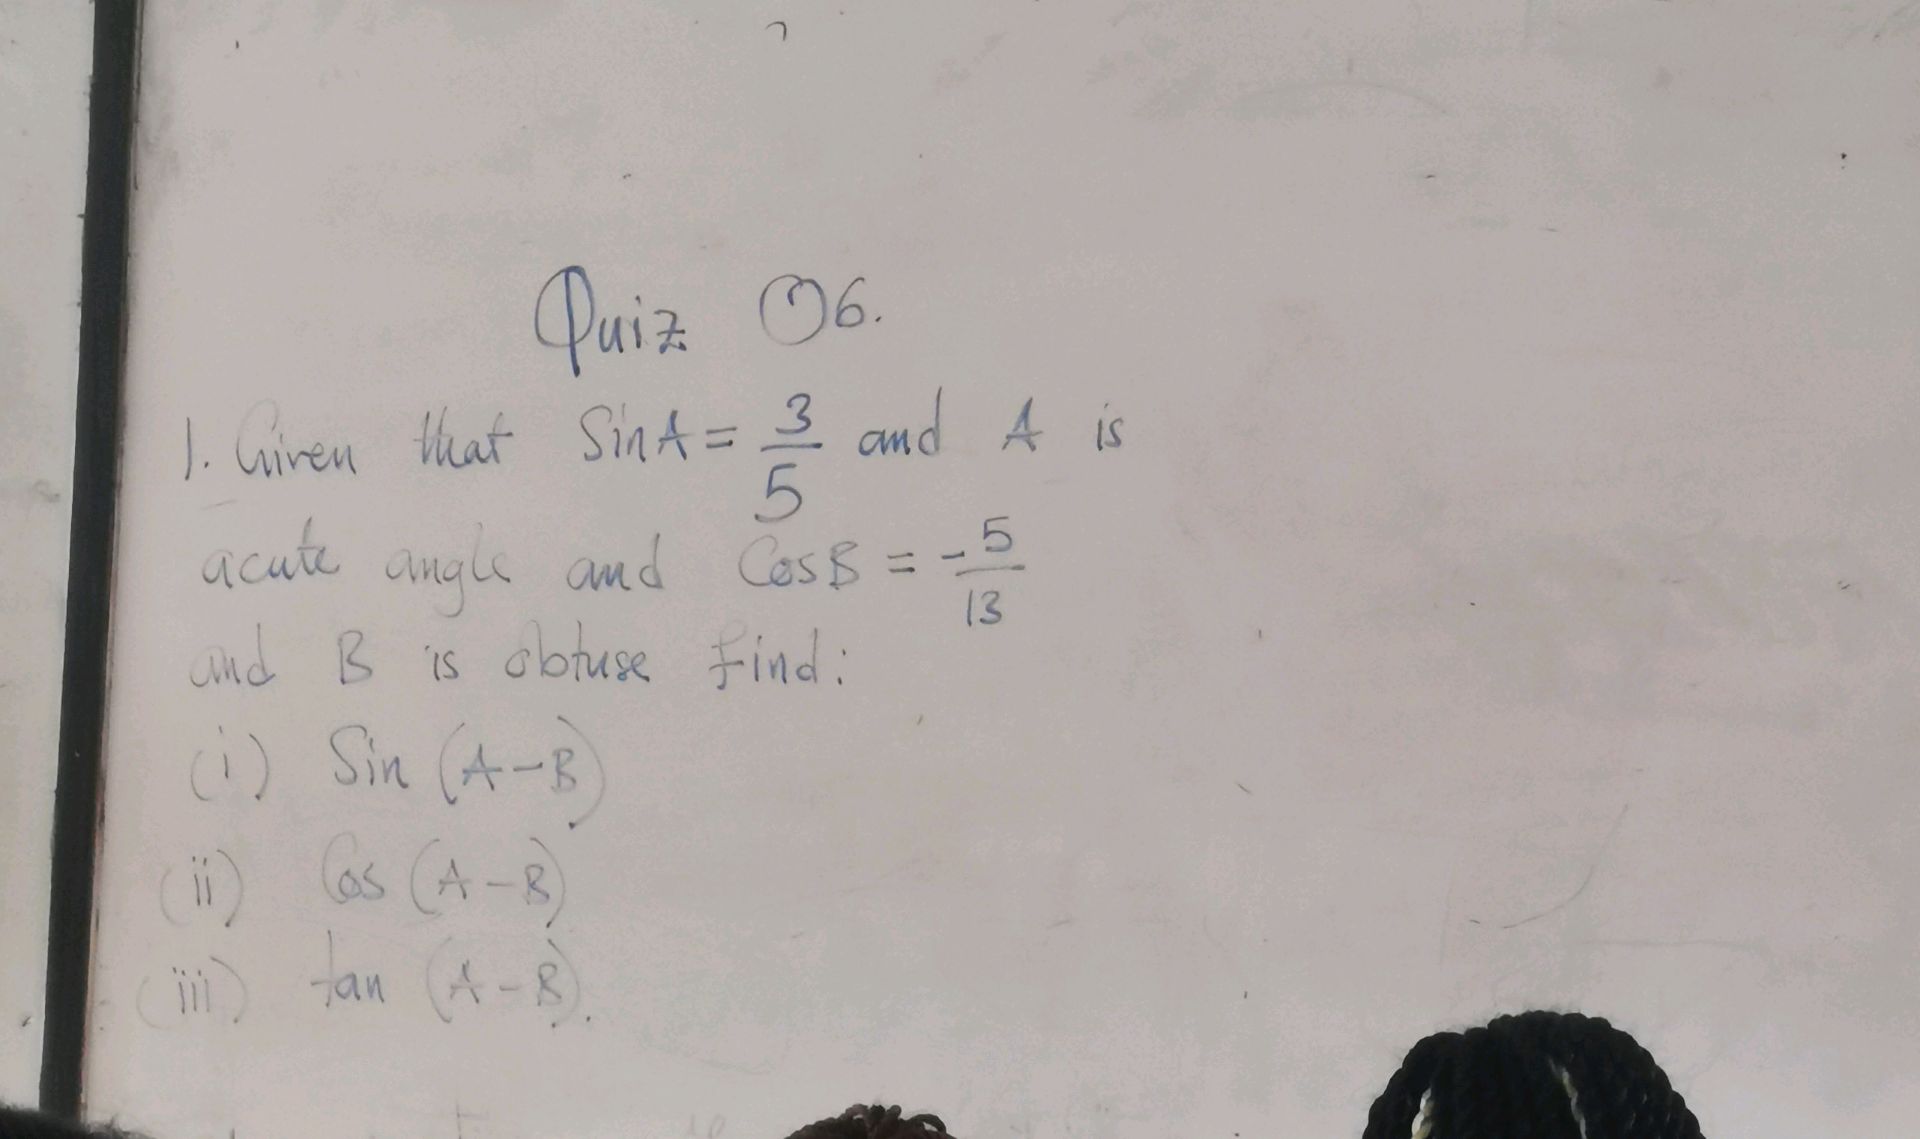 Quiz 06.
1. Given that Sin A = 3/5 and A is
acute angle and Cos B = -5/13
and B is obtuse find:
(i) Sin (A-B)
(ii) Cos (A-B)
(iii) tan (A-B).